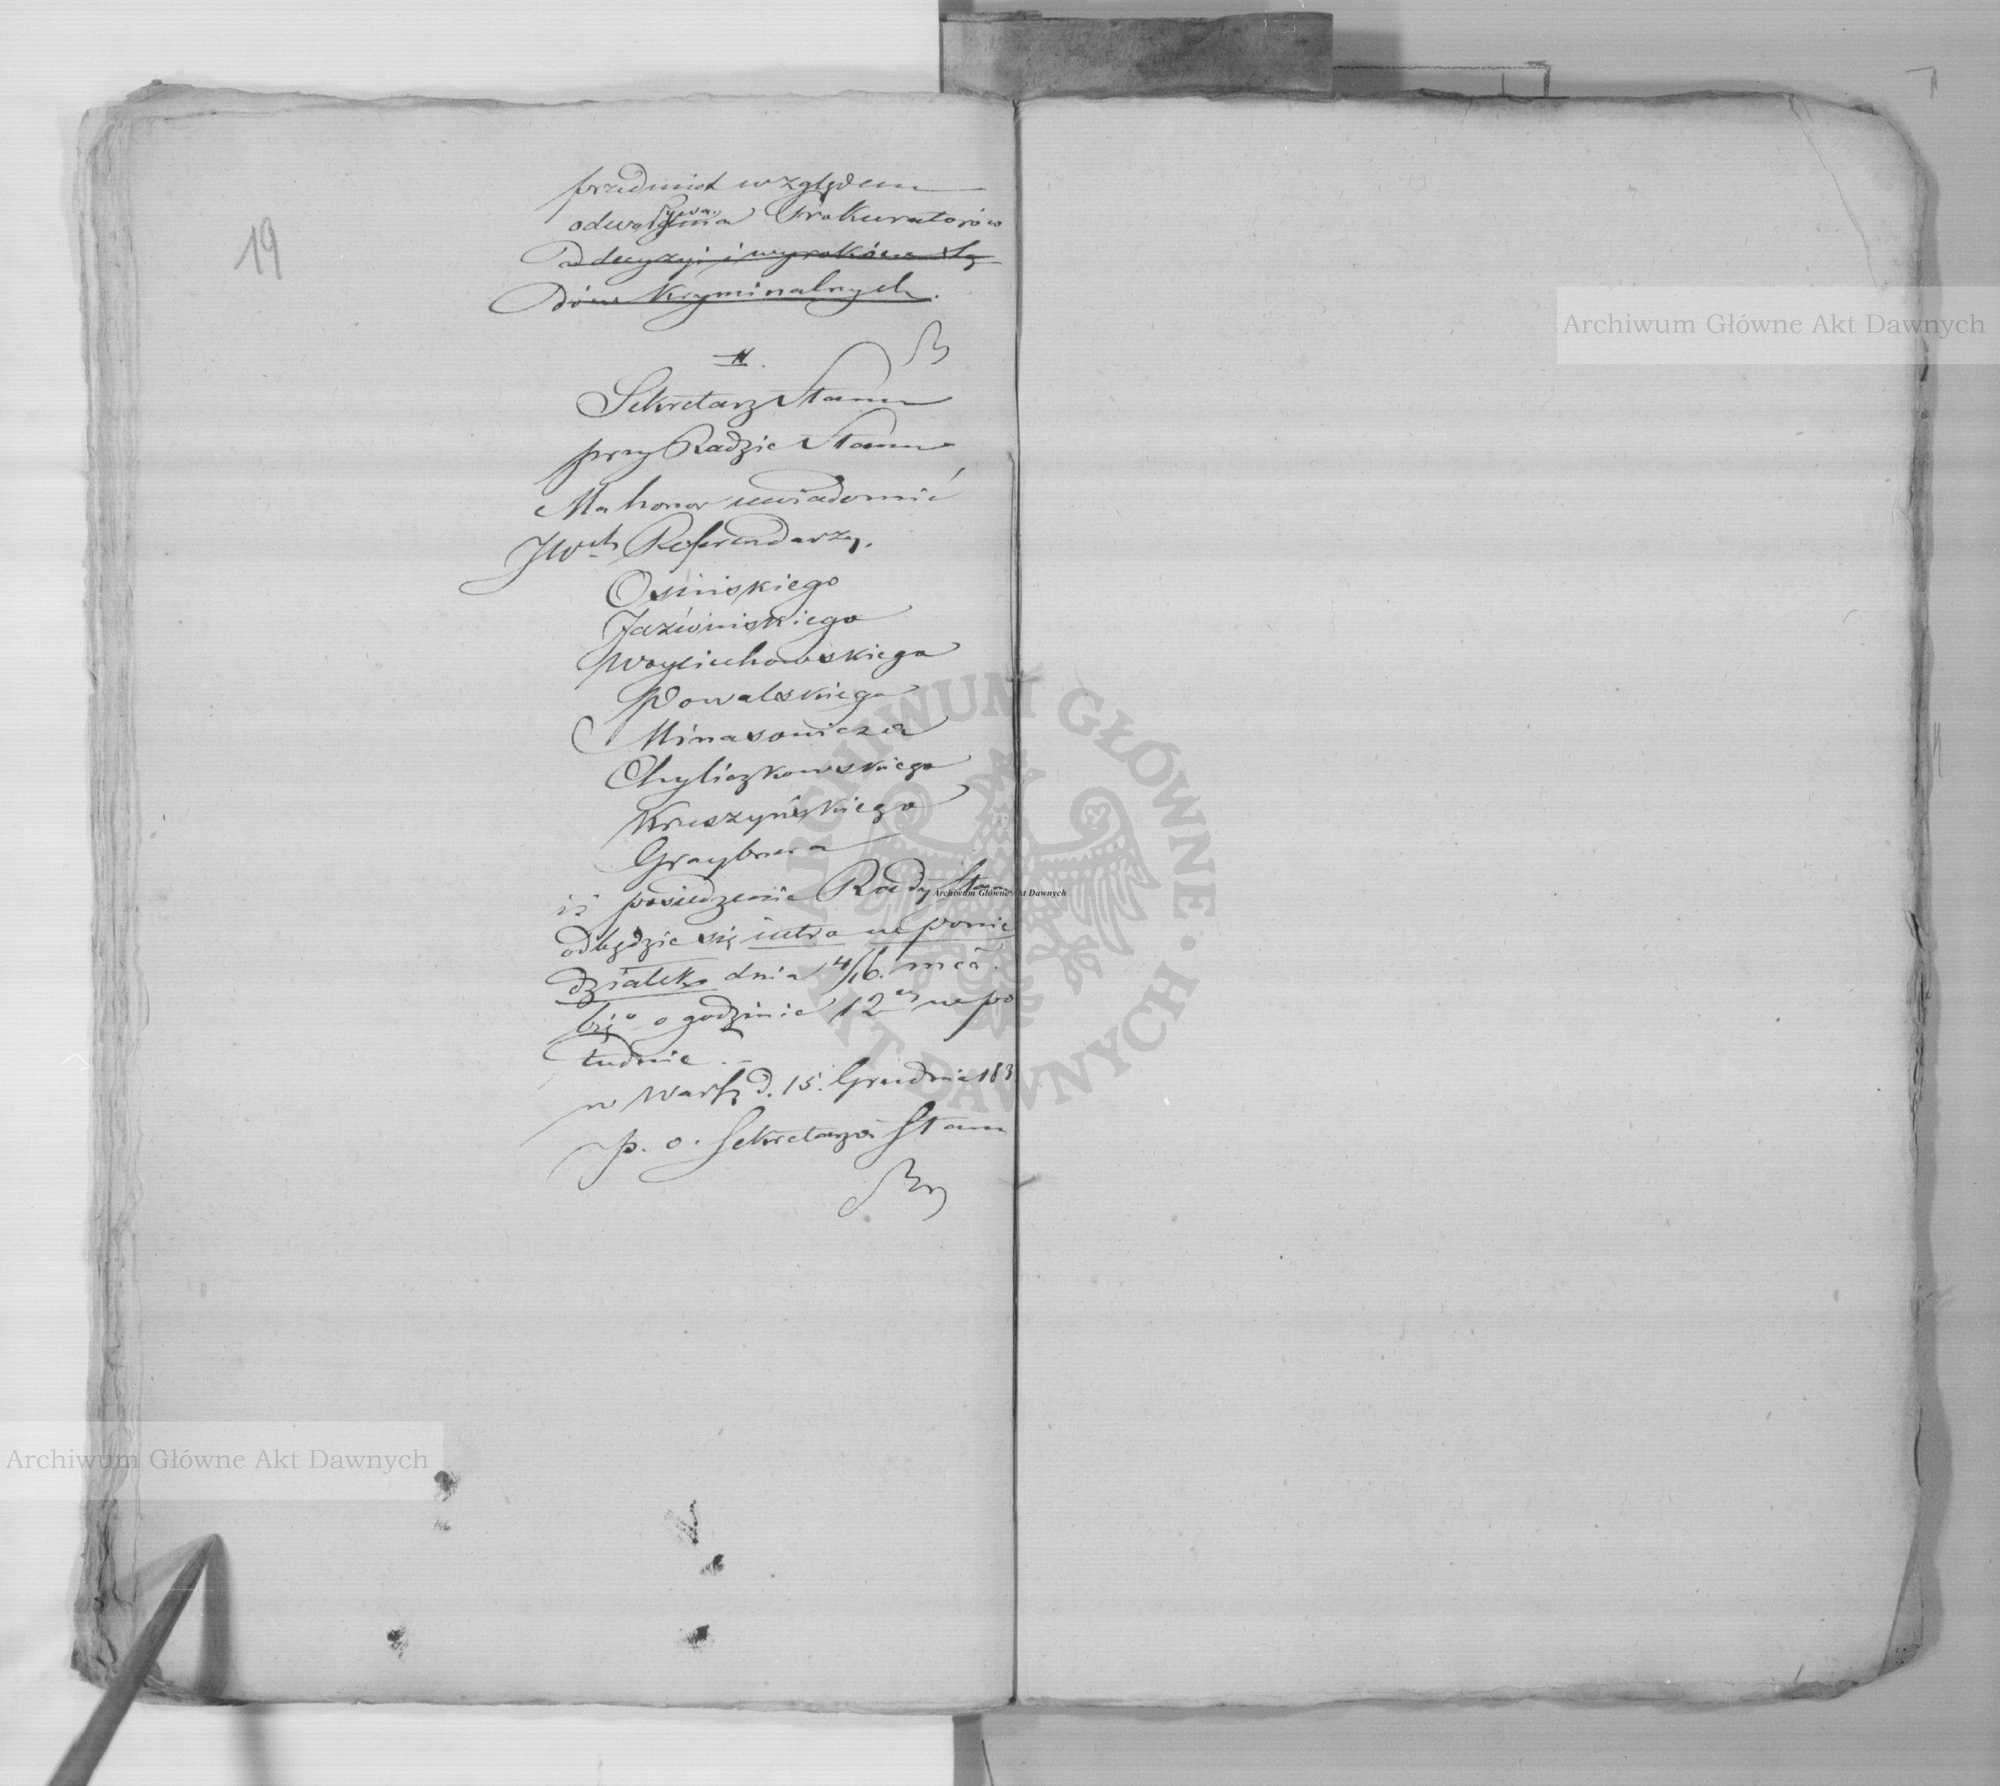 19
przedmiot względem
odwoływania Prokuratorów
od decyzyi i wyroków Są
dów Kryminalnych.
Sekretarz Stanu
przy Radzie Stanu
Ma honor uwiadomić
JWch Referendarzy.
Osińskiego
Jaźwińskiego
Woyciechowskiego
Kowalskiego
Minasowicza
Chyliczkowskiego
Kruszyńskiego
Graybnera
iż posiedzenie Rady Stanu
odbędzie się iutro w ponie
działek dnia 4/16. mca
bżo o godzinie 12ey w po
łudnie.
w Warsz d. 15. Grudnia 183
p. o. Sekretarza Stanu
Archiwum Główne Akt Dawnych
Archiwum Główne Akt Dawnych
Archiwum Główne Akt Dawnych
ARCHIWUM GŁÓWNE AKT DAWNYCH